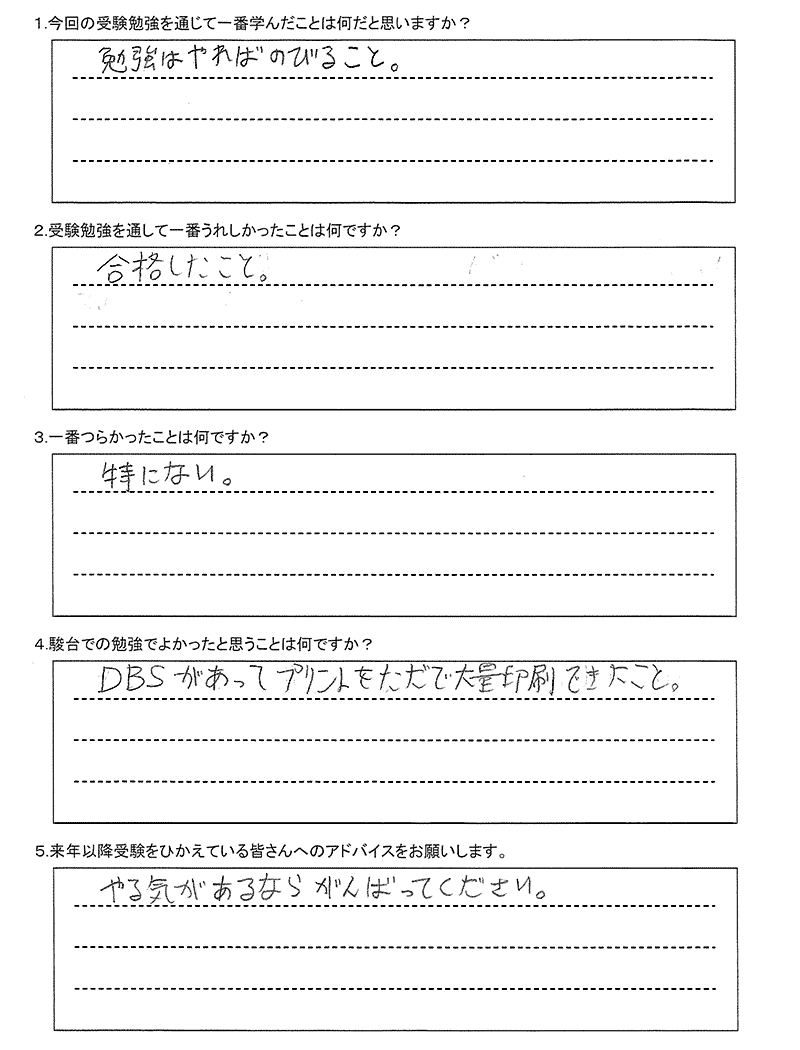 1.今回の受験勉強を通じて一番学んだことは何だと思いますか？
勉強はやればのびること。
2.受験勉強を通して一番うれしかったことは何ですか？
合格したこと。
3.一番つらかったことは何ですか？
特にない。
4.駿台での勉強でよかったと思うことは何ですか？
DBSがあってプリントをただで大量印刷できたこと。
5.来年以降受験をひかえている皆さんへのアドバイスをお願いします。
やる気があるならがんばってください。